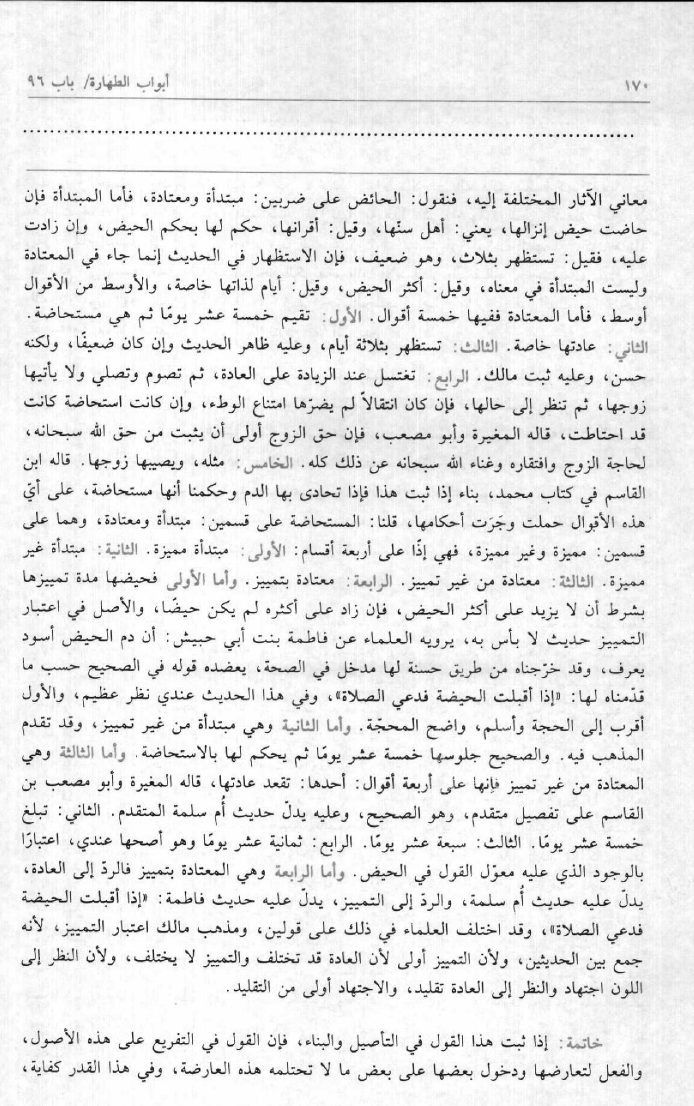 ١٧٠
أبواب الطهارة/ باب ٩٦
معاني الآثار المختلفة إليه، فنقول: الحائض على ضربين: مبتدأة ومعتادة، فأما المبتدأة فإن
حاضت حيض إنزالها، يعني: أهل سنّها، وقيل: أقرانها، حكم لها بحكم الحيض، وإن زادت
عليه، فقيل: تستظهر بثلاث، وهو ضعيف، فإن الاستظهار في الحديث إنما جاء في المعتادة
وليست المبتدأة في معناه، وقيل: أكثر الحيض، وقيل: أيام لذاتها خاصة، والأوسط من الأقوال
أوسط، فأما المعتادة ففيها خمسة أقوال. الأول: تقيم خمسة عشر يومًا ثم هي مستحاضة.
الثاني: عادتها خاصة. الثالث: تستظهر بثلاثة أيام، وعليه ظاهر الحديث وإن كان ضعيفًا، ولكنه
حسن، وعليه ثبت مالك. الرابع: تغتسل عند الزيادة على العادة، ثم تصوم وتصلي ولا يأتيها
زوجها، ثم تنظر إلى حالها، فإن كان انتقالاً لم يضرّها امتناع الوطء، وإن كانت استحاضة كانت
قد احتاطت، قاله المغيرة وأبو مصعب، فإن حق الزوج أولى أن يثبت من حق الله سبحانه،
لحاجة الزوج وافتقاره وغناء الله سبحانه عن ذلك كله. الخامس: مثله، ويصيبها زوجها. قاله ابن
القاسم في كتاب محمد، بناء إذا ثبت هذا فإذا تحادى بها الدم وحكمنا أنها مستحاضة، على أيّ
هذه الأقوال حملت وجَرَت أحكامها، قلنا: المستحاضة على قسمين: مبتدأة ومعتادة، وهما على
قسمين: مميزة وغير مميزة، فهي إذًا على أربعة أقسام: الأولى: مبتدأة مميزة. الثانية: مبتدأة غير
مميزة. الثالثة: معتادة من غير تمييز. الرابعة: معتادة بتمييز. وأما الأولى فحيضها مدة تمييزها
بشرط أن لا يزيد على أكثر الحيض، فإن زاد على أكثره لم يكن حيضًا، والأصل في اعتبار
التمييز حديث لا بأس به، يرويه العلماء عن فاطمة بنت أبي حبيش: أن دم الحيض أسود
يعرف، وقد خرّجناه من طريق حسنة لها مدخل في الصحة، يعضده قوله في الصحيح حسب ما
قدّمناه لها: «إذا أقبلت الحيضة فدعي الصلاة»، وفي هذا الحديث عندي نظر عظيم، والأول
أقرب إلى الحجة وأسلم، واضح المحجّة. وأما الثانية وهي مبتدأة من غير تمييز، وقد تقدم
المذهب فيه. والصحيح جلوسها خمسة عشر يومًا ثم يحكم لها بالاستحاضة. وأما الثالثة وهي
المعتادة من غير تمييز فإنها على أربعة أقوال: أحدها: تقعد عادتها، قاله المغيرة وأبو مصعب بن
القاسم على تفصيل متقدم، وهو الصحيح، وعليه يدلّ حديث أُم سلمة المتقدم. الثاني: تبلغ
خمسة عشر يومًا. الثالث: سبعة عشر يومًا. الرابع: ثمانية عشر يومًا وهو أصحها عندي، اعتبارًا
بالوجود الذي عليه معوّل القول في الحيض. وأما الرابعة وهي المعتادة بتمييز فالردّ إلى العادة،
يدلّ عليه حديث أُم سلمة، والردّ إلى التمييز، يدلّ عليه حديث فاطمة: «إذا أقبلت الحيضة
فدعي الصلاة»، وقد اختلف العلماء في ذلك على قولين، ومذهب مالك اعتبار التمييز، لأنه
جمع بين الحديثين، ولأن التمييز أولى لأن العادة قد تختلف والتمييز لا يختلف، ولأن النظر إلى
اللون اجتهاد والنظر إلى العادة تقليد، والاجتهاد أولى من التقليد.
خاتمة: إذا ثبت هذا القول في التأصيل والبناء، فإن القول في التفريع على هذه الأصول،
والفعل لتعارضها ودخول بعضها على بعض ما لا تحتلمه هذه العارضة، وفي هذا القدر كفاية،